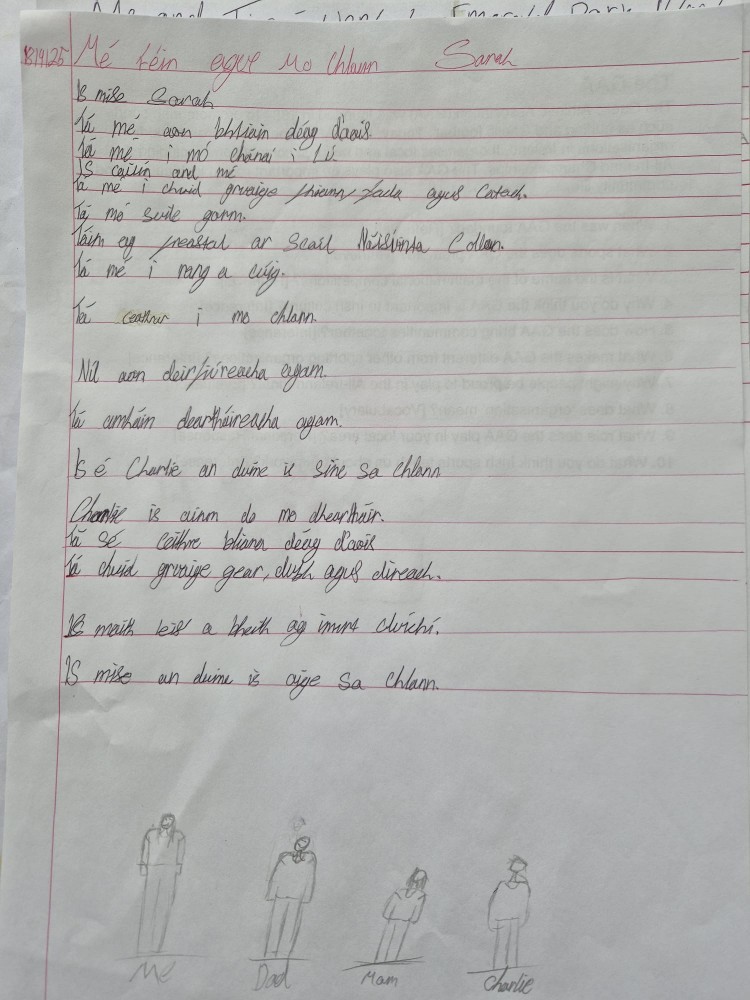 Me and
Emerald Park
18/9/25 Mé féin agus Mo Chlann Sarah
Is mise Sarah
Tá mé aon bhliain déag d'aois
Tá mé i mó chónaí i Lú.
Is cailín and mé
Tá mé i chuid gruaige fhionn fada agus Catach.
Tá mó suile gorm.
Táim ag freastal ar Scoil Náisiúnta Collon.
Tá mé i rang a cúig.
Tá ceathrar i mo chlann.
Níl aon deirfiúreacha agam
Tá amháin deartháireacha agam.
Is é Charlie an duine is sine sa Chlann
Charlie is ainm do mo dheartháir.
Tá sé ceithre bliana déag d'aois
Tá chuid gruaige gear, dubh agus díreach.
Is maith leis a bheith ag imirt cluichí.
Is mise an duine is óige sa Chlann.
Me
Dad
Mam
Charlie